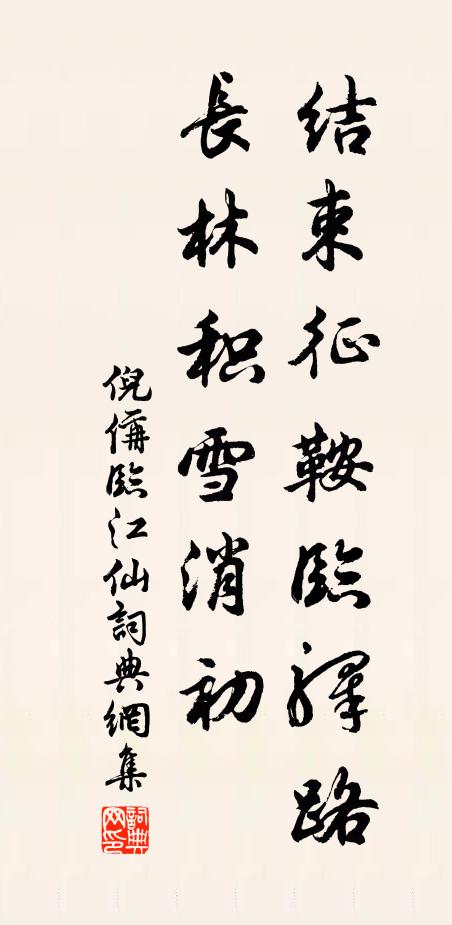 結束征鞍臨驛路
長林积雪消初
倪偁臨江仙詞典網集
詞典网印